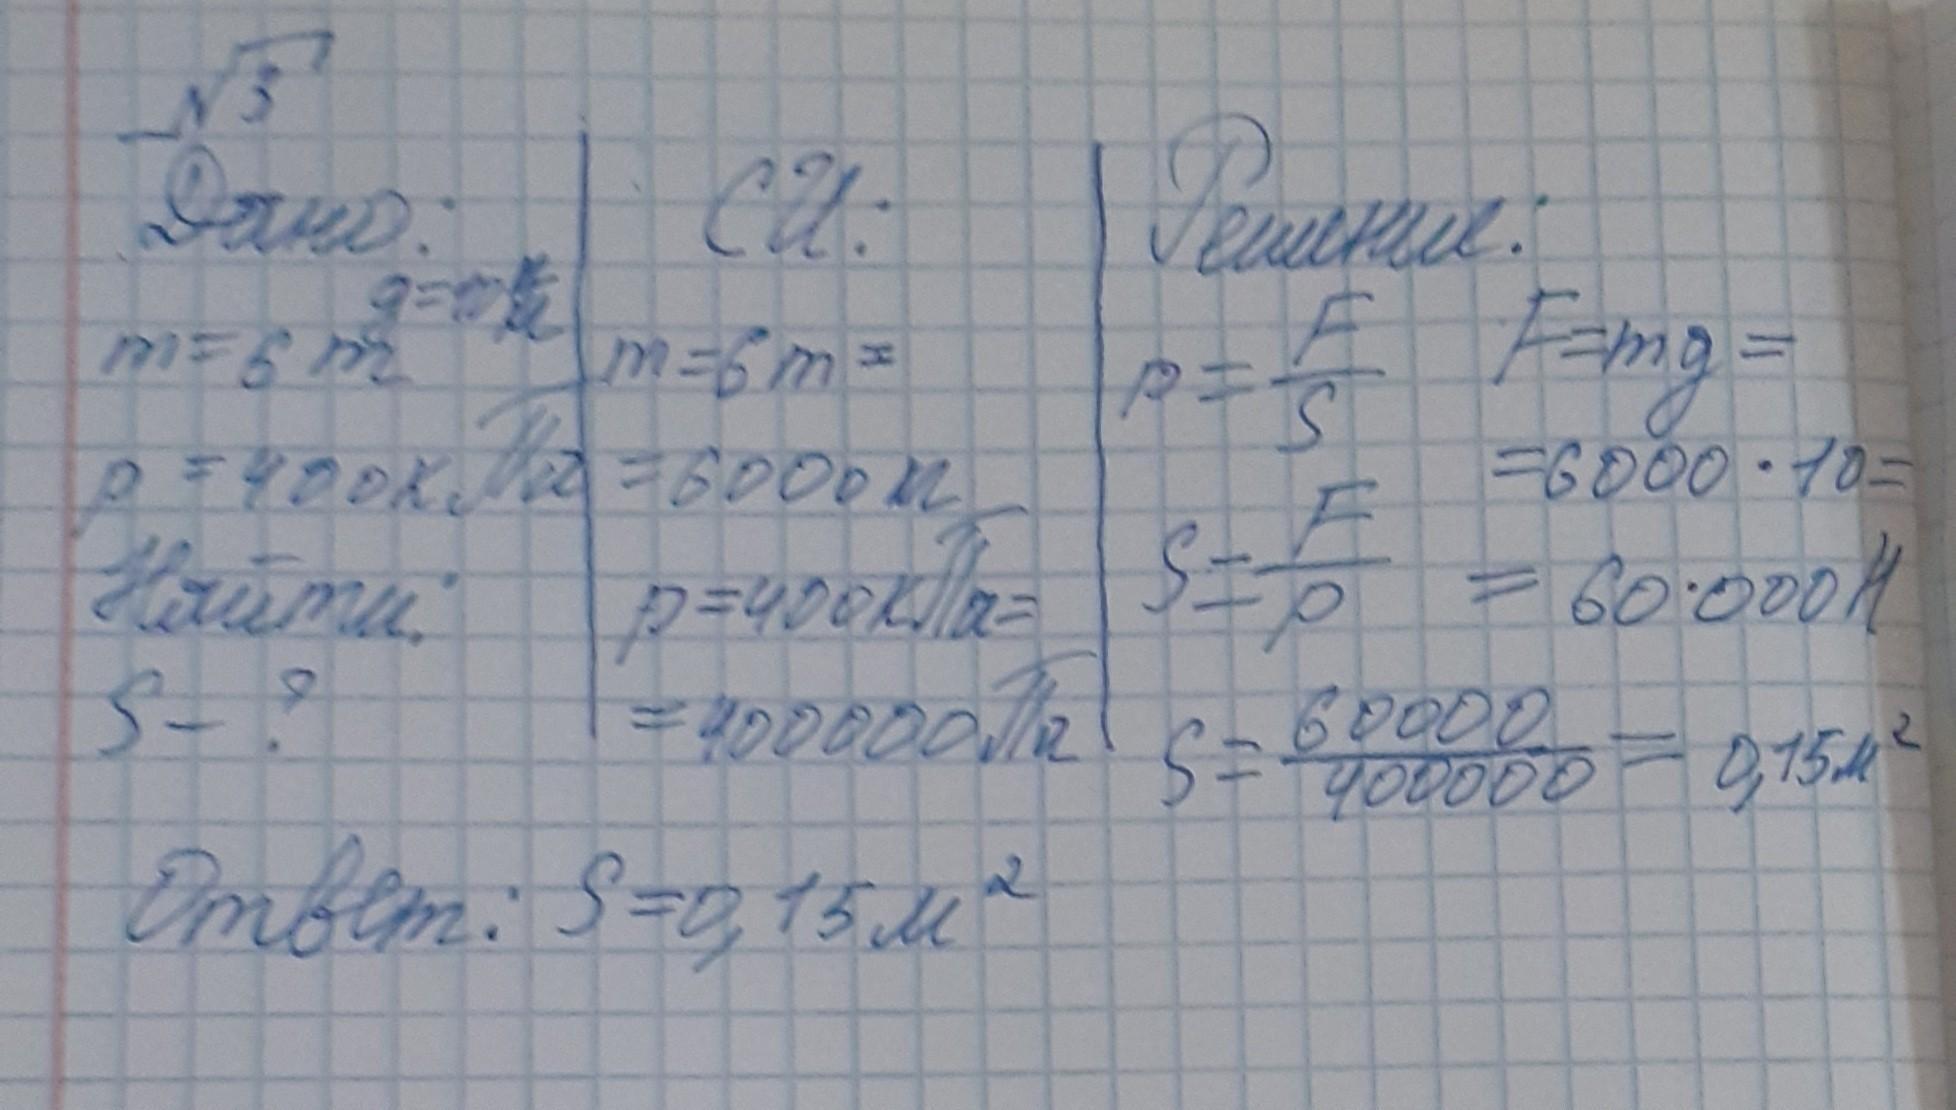 √3
Дано:
g=10 Н/кг
m=6 т
p=400кПа
Найти:
S-?
СИ:
m=6т=
=6000кг
p=400кПа=
=400000Па
Решение:
p=F/S F=mg=
=6000·10=
S=F/p =60·000Н
S=60000/400000=0,15м²
Ответ: S=0,15м²